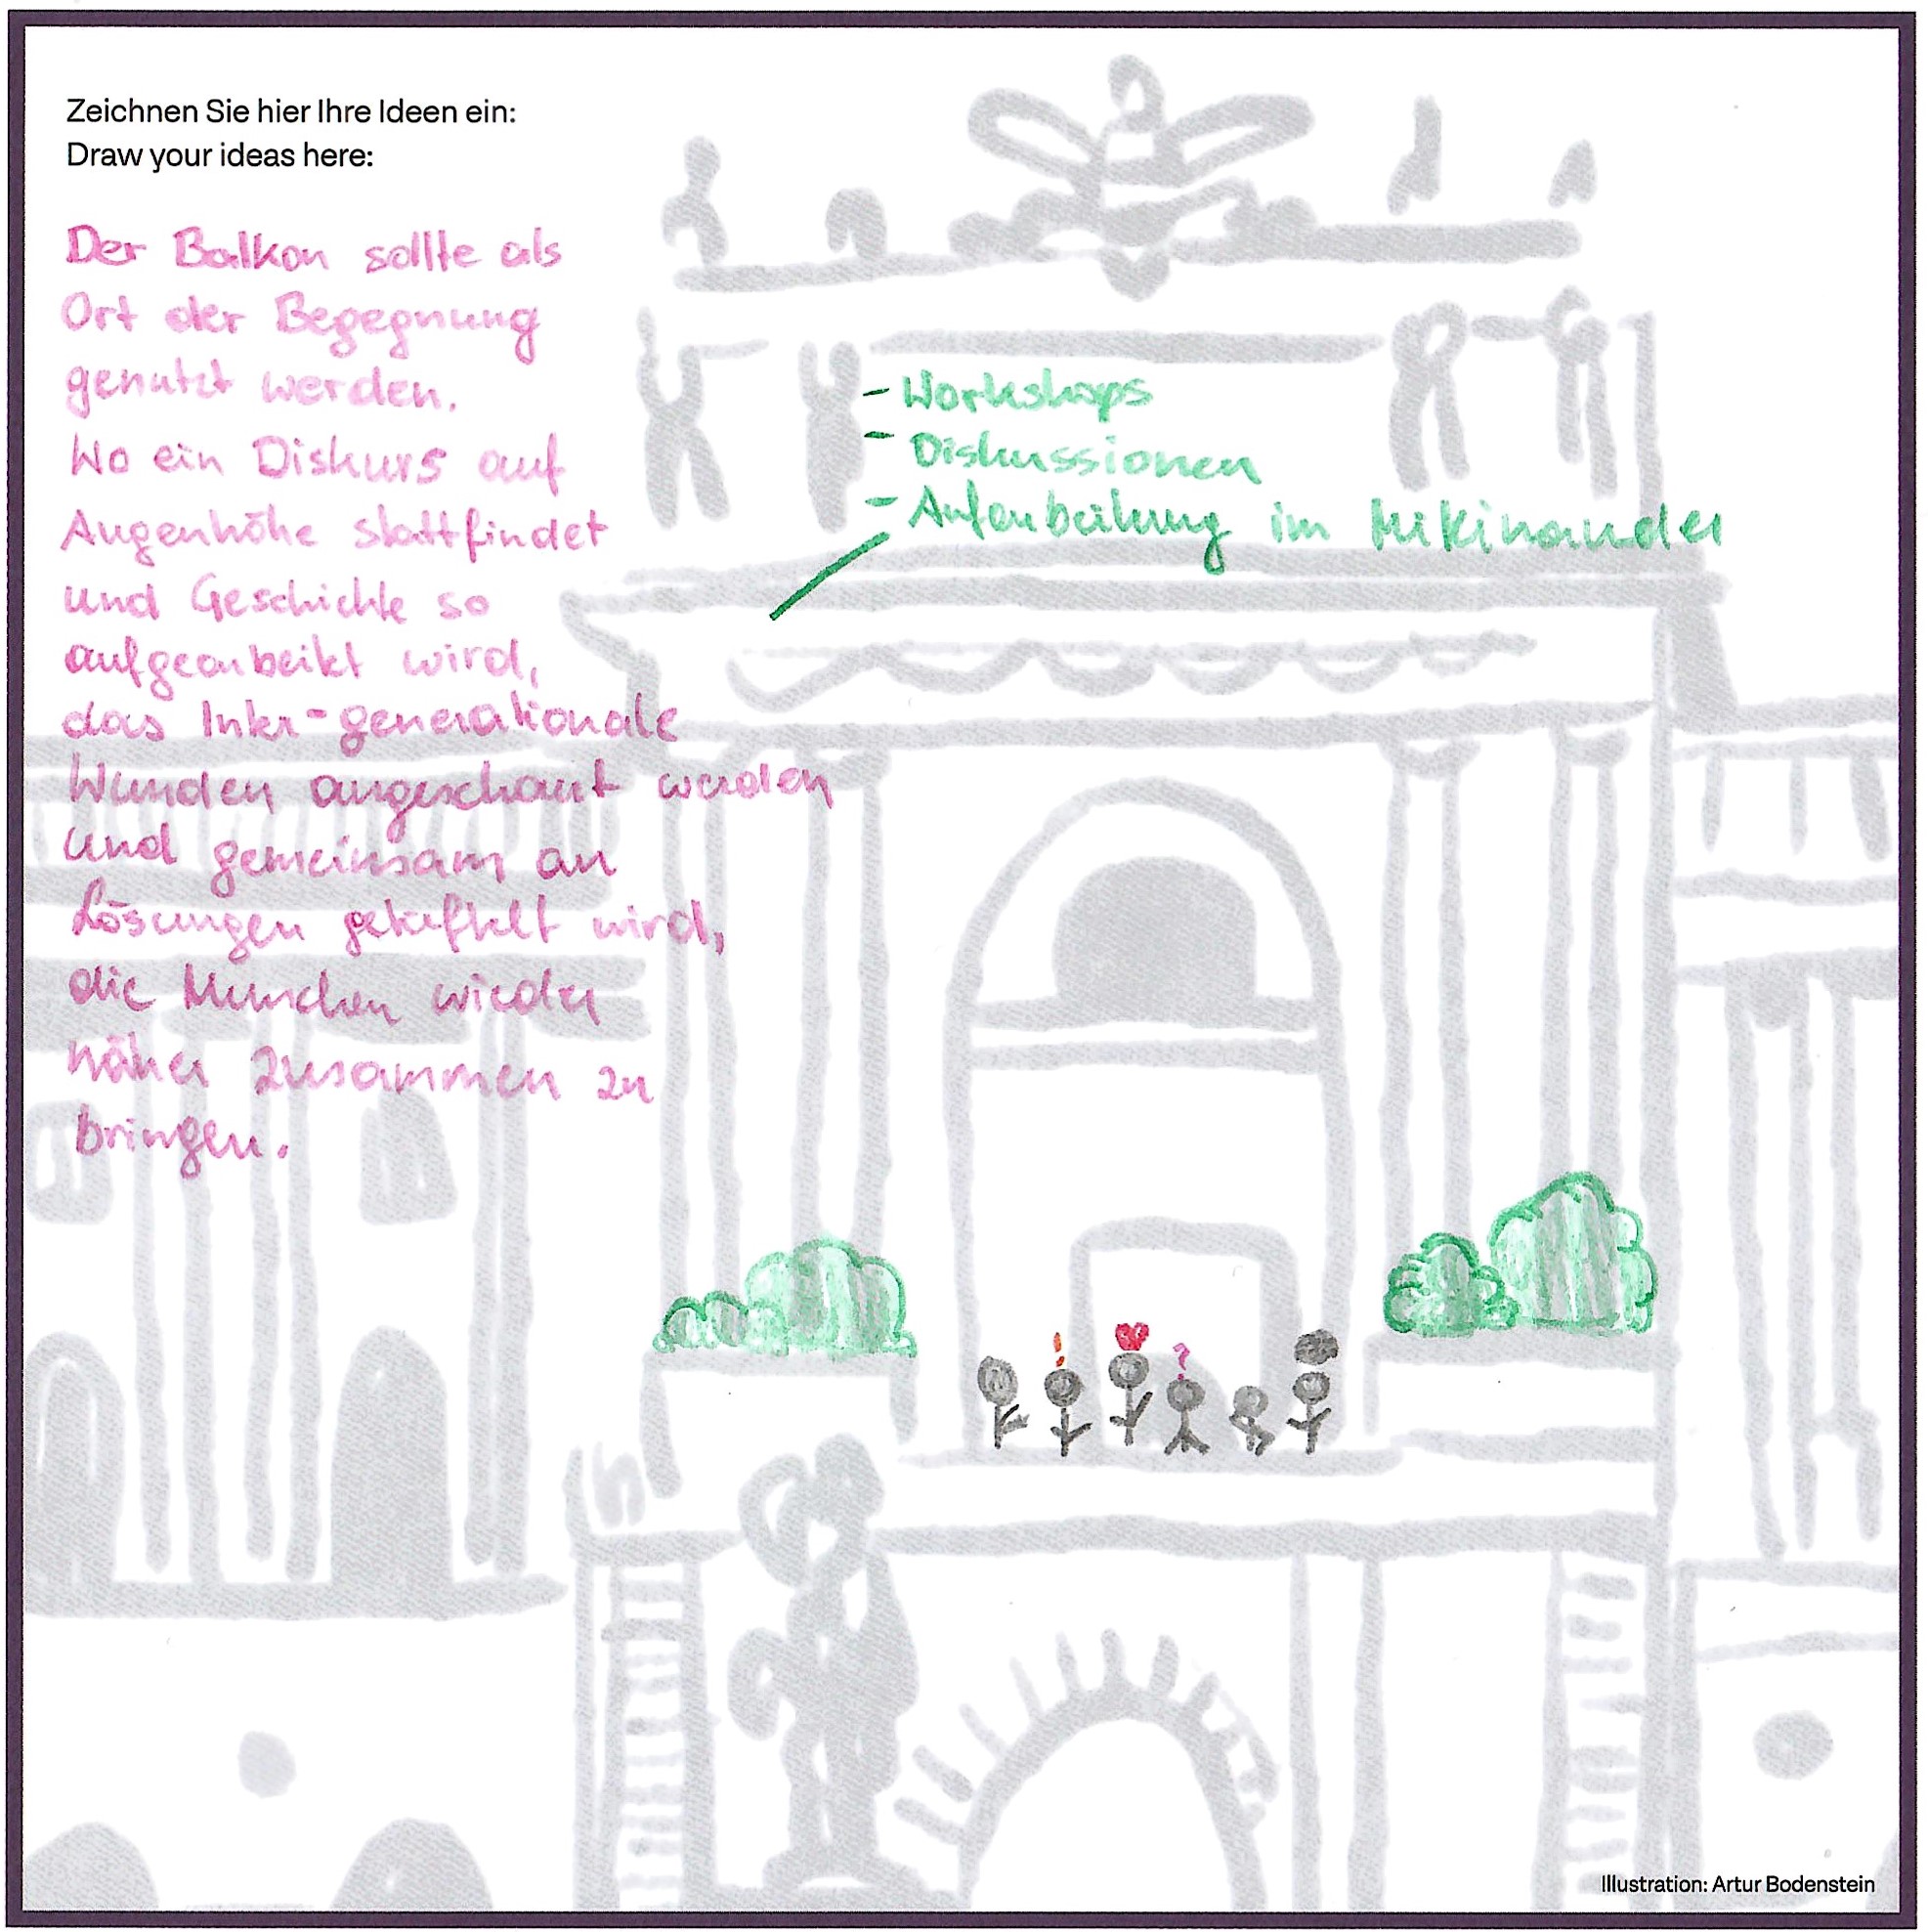 Zeichnen Sie hier Ihre Ideen ein:
Draw your ideas here:
Der Balkon sollte als
Ort der Begegnung
genutzt werden.
Wo ein Diskurs auf
Augenhöhe stattfindet
und Geschichte so
aufgearbeitet wird,
das Inter-generationale
Wunden angeschaut werden
und gemeinsam an
Lösungen getüftelt wird,
die Menschen wieder
näher zusammen zu
bringen.
- Workshops
- Diskussionen
- Aufarbeitung im Miteinander
!
?
Illustration: Artur Bodenstein